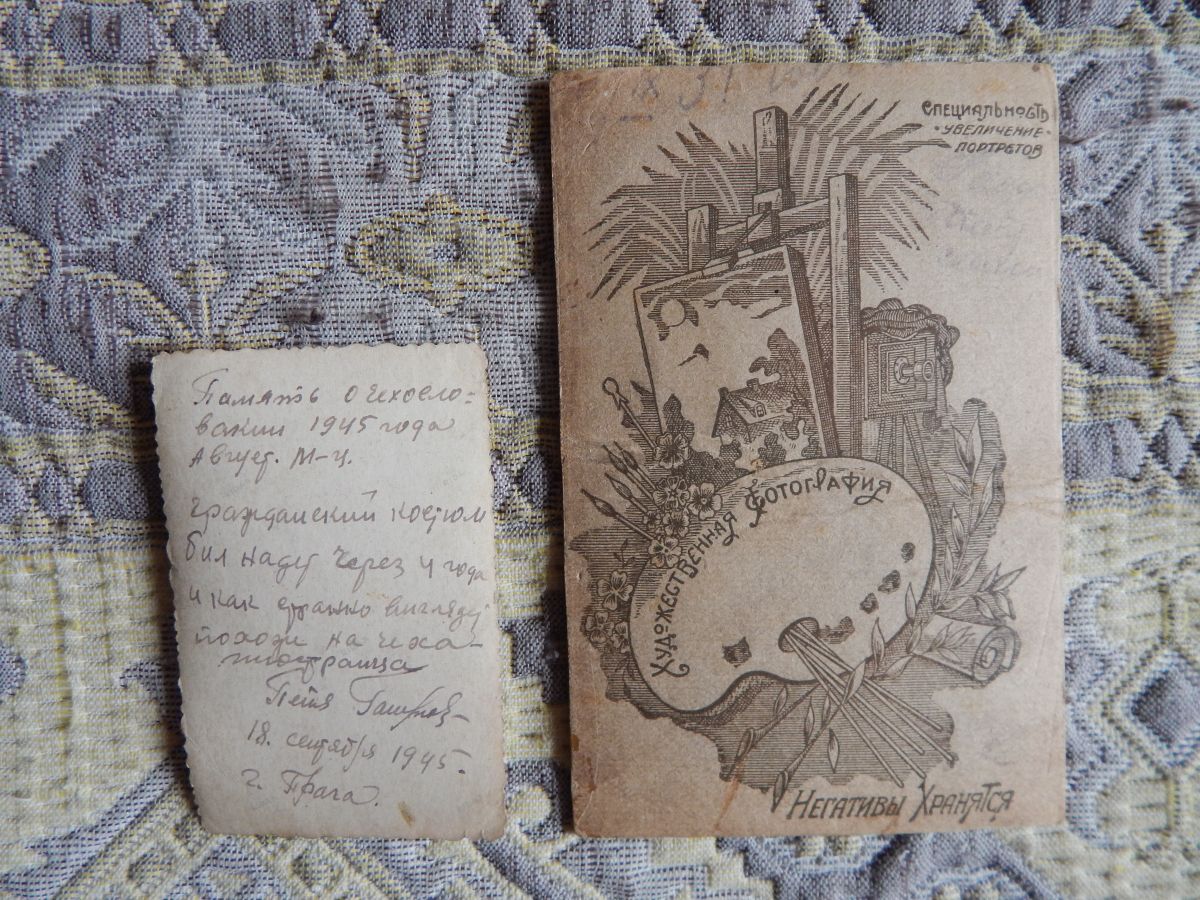 Память о чехосло-
вакии 1945 года
Август. М-ц.
гражданский костюм
бил надет через 4 года
и как странно
похож на чеха-
иностранца
Петя
18. сентября 1945.
г. Прага.
IX 31
Специальность
·Увеличение·
портретов
Художественная Фотография
Негативы Хранятся